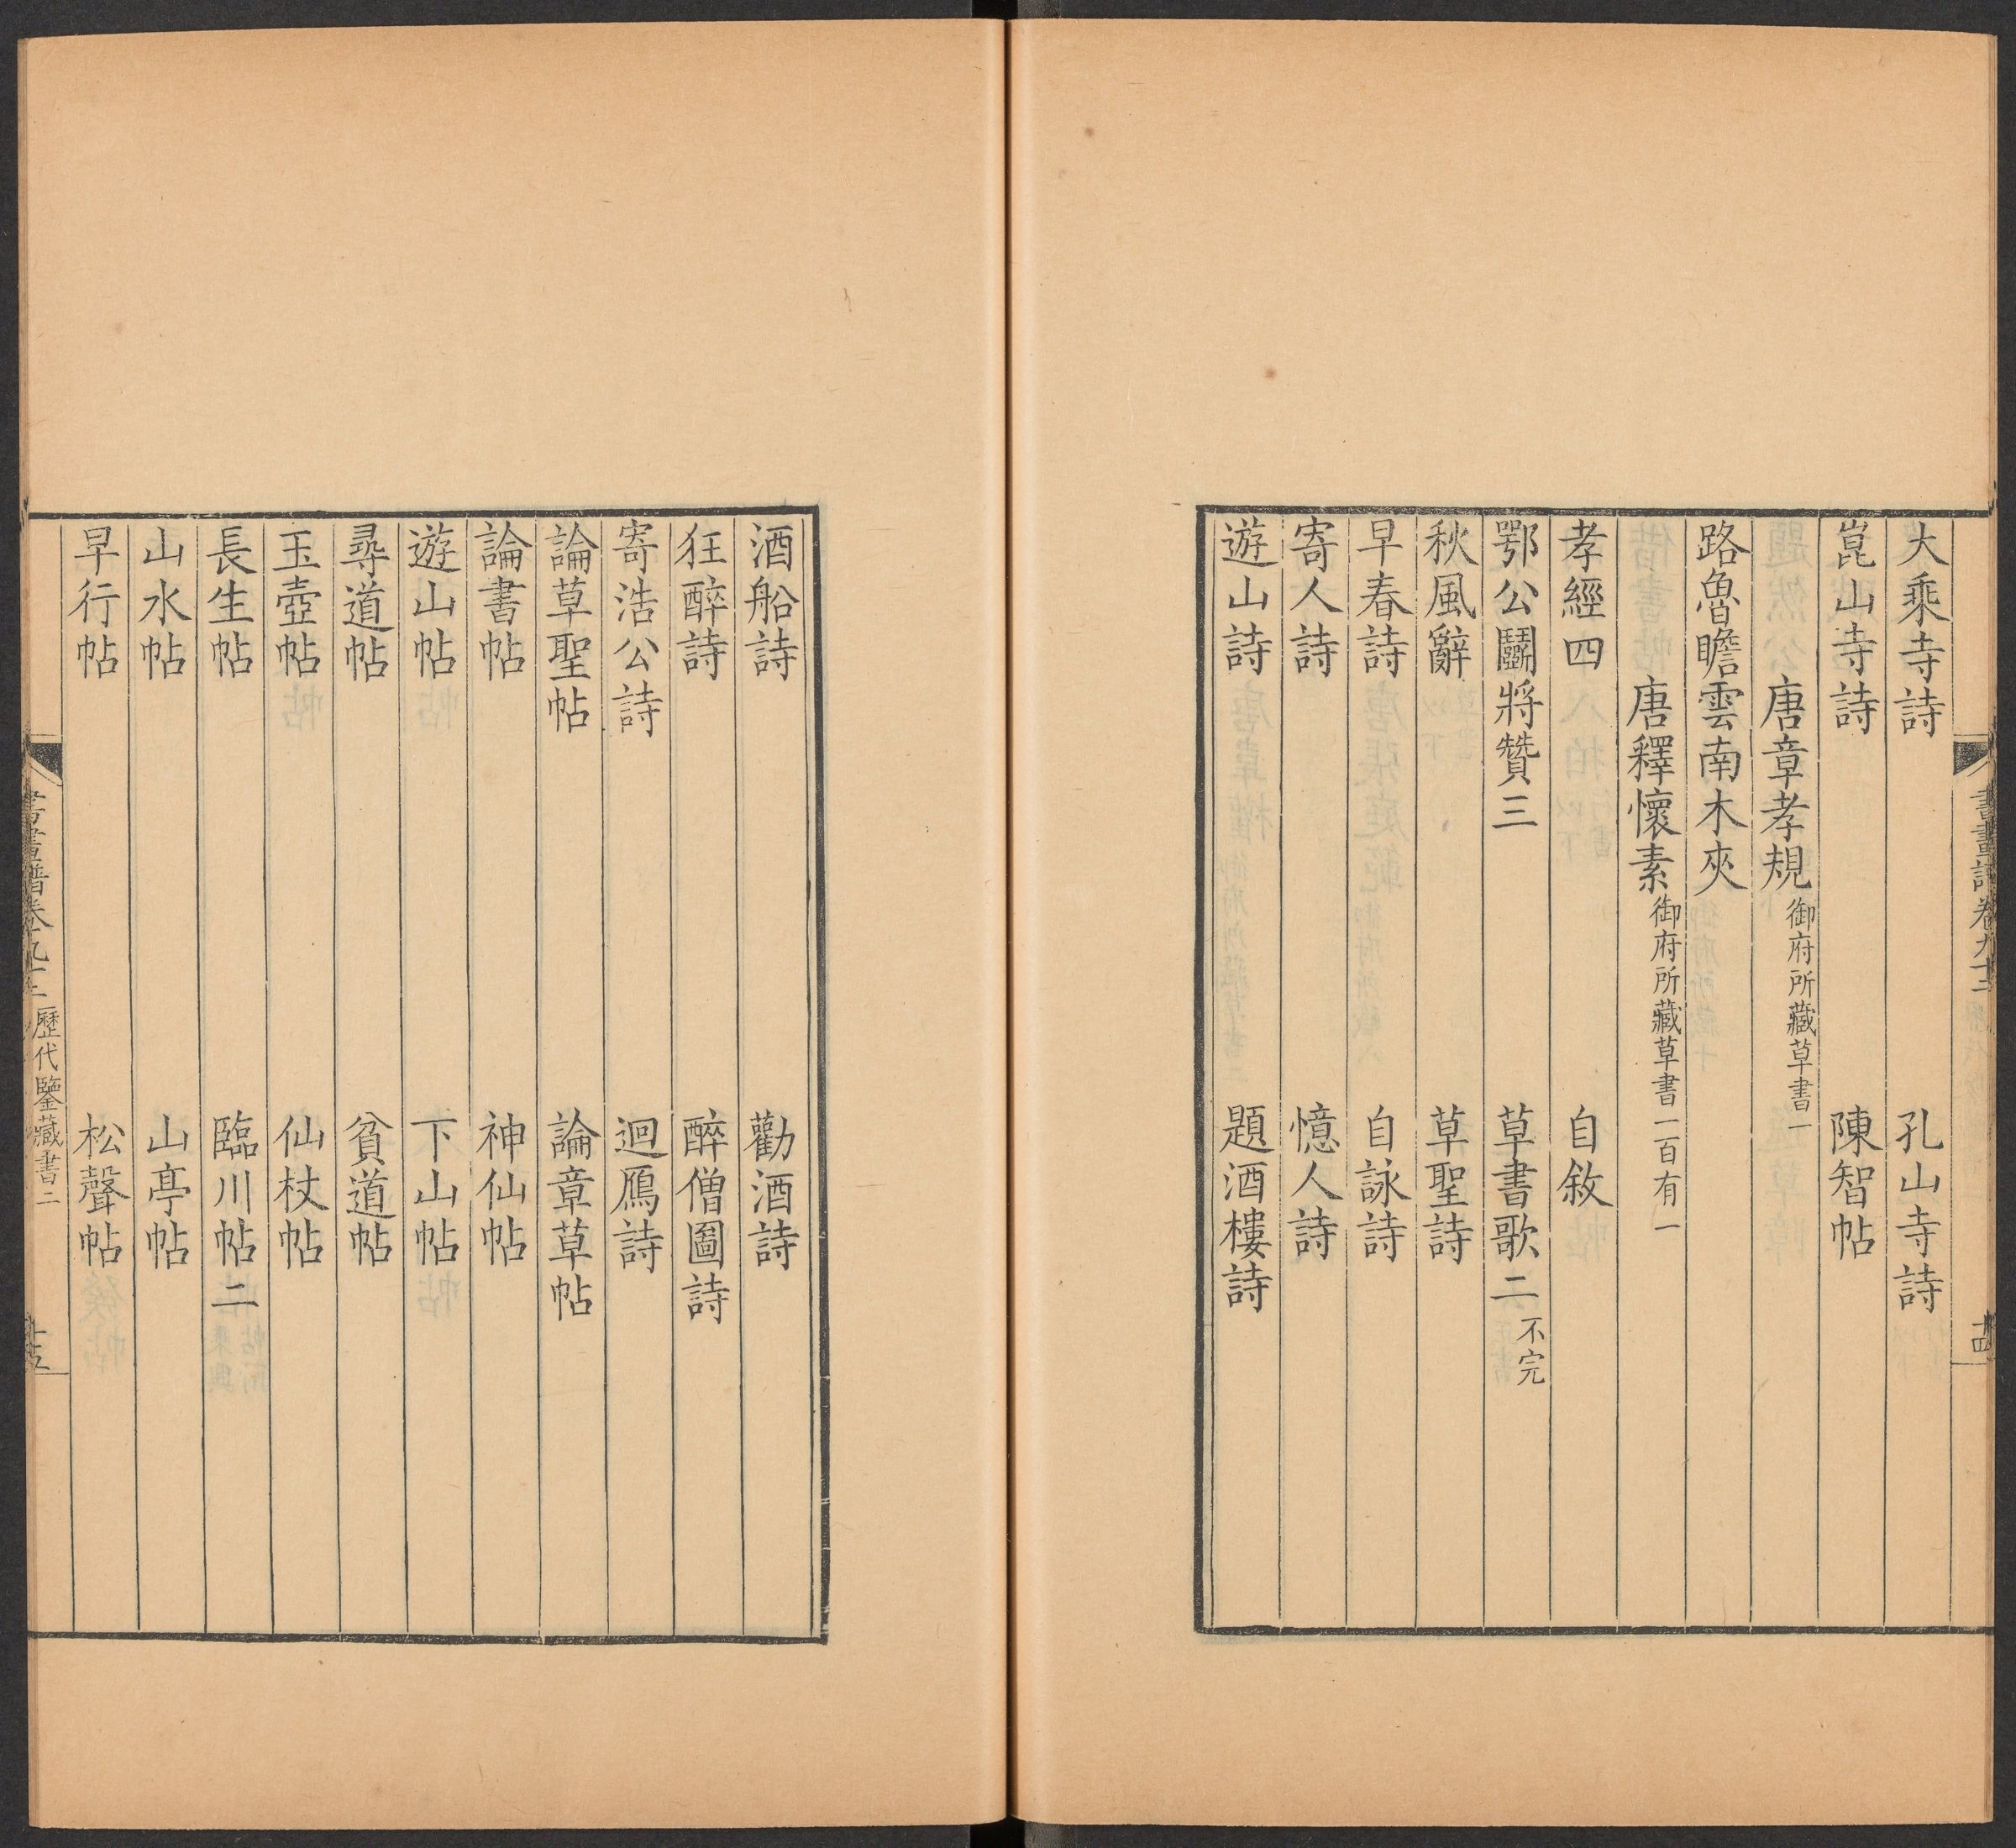 書畫譜卷九十二
十四
大乘寺詩 孔山寺詩
崑山寺詩 陳智帖
唐章孝規御府所藏草書一
路魯瞻雲南木夾
唐釋懷素御府所藏草書一百有一
孝經四 自敘
鄂公鬬將贊三 草書歌二不完
秋風辭 草聖詩
早春詩 自詠詩
寄人詩 憶人詩
遊山詩 題酒樓詩
酒船詩 勸酒詩
狂醉詩 醉僧圖詩
寄浩公詩 迴鴈詩
論草聖帖 論章草帖
論書帖 神仙帖
遊山帖 下山帖
尋道帖 貧道帖
玉壺帖 仙杖帖
長生帖 臨川帖二
山水帖 山亭帖
早行帖 松聲帖
書畫譜卷九十二 歷代鑒藏書二
十五